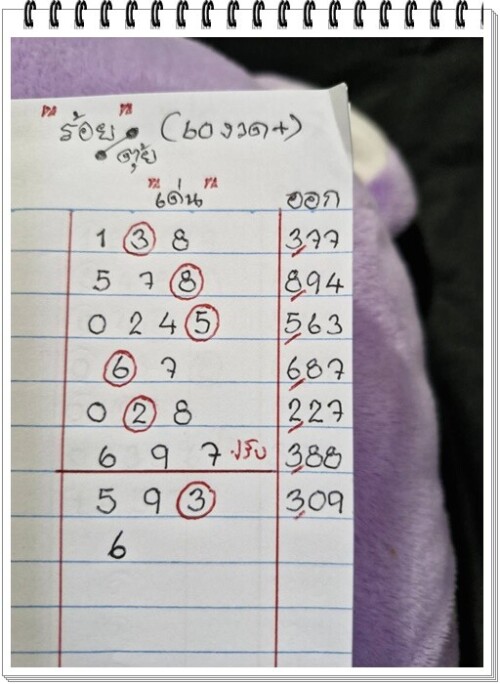 ร้อย (60 งวด +)
ตุ้ย
เด่น ออก
1 3 8 377
5 7 8 894
0 2 4 5 563
6 7 687
0 2 8 227
6 9 7 ปรับ 388
5 9 3 309
6